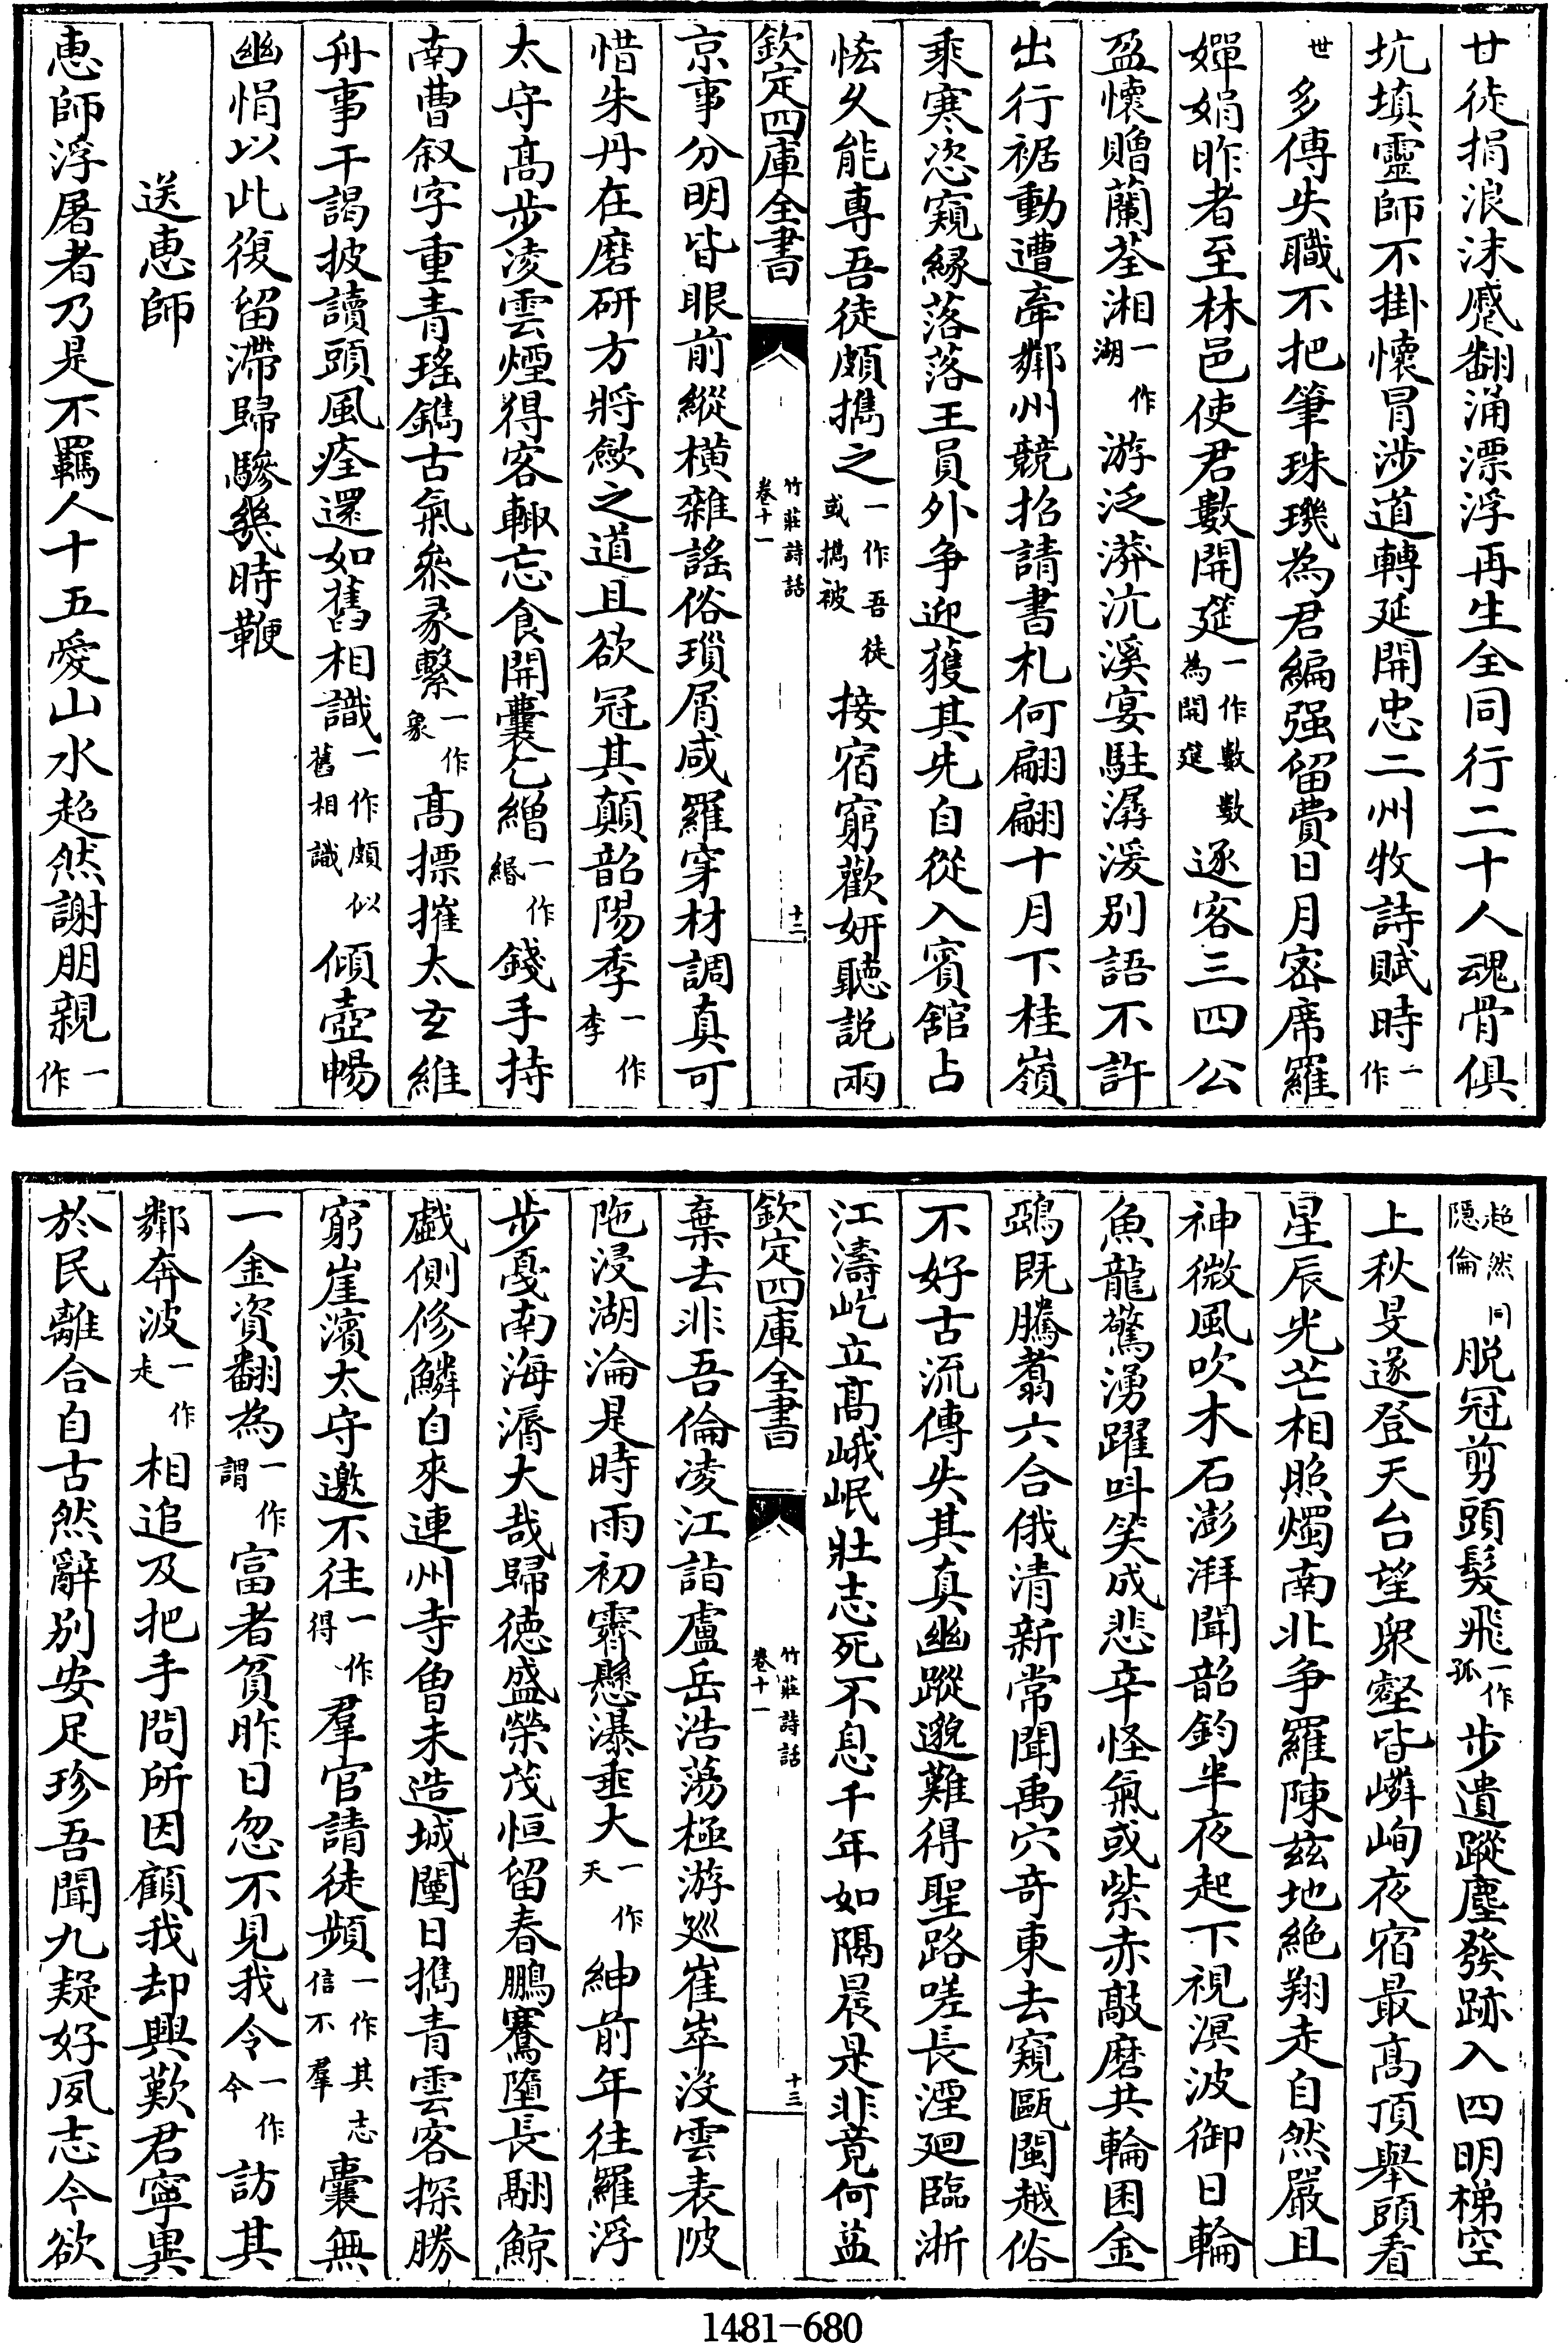 廿徒捐浪沫蹙翻涌漂浮再生全同行二十人魂骨俱
坑填靈師不掛懷冒涉道轉延開忠二州牧詩賦時一作
世多傳失職不把筆珠璣為君編强留費日月密席羅
嬋娟昨者至林邑使君數開筵一作數數為開筵逐客三四公
盈懷贈蘭荃湘一作湖游泛漭沆溪宴駐潺湲别語不許
出行裾動遭牽鄰州競招請書札何翩翩十月下桂嶺
乘寒恣窺縁落落王員外争迎獲其先自從入賓館占
恡乆能專吾徒頗擕之一作吾徒或擕被接宿窮歡妍聽説兩
欽定四庫全書
竹莊詩話
卷十一
十二
京事分明皆眼前縱橫雜謠俗瑣屑咸羅穿材調真可
惜朱丹在磨研方將斂之道且欲冠其顛韶陽季一作李
太守高步凌雲煙得客輒忘食開囊乞繒一作緡錢手持
南曹叙字重青瑤鐫古氣叅彖繫一作象高摽摧太玄維
舟事干謁披讀頭風痊還如舊相識一作頗似舊相識傾壺暢
幽悁以此復留滯歸驂幾時鞭
送恵師
恵師浮屠者乃是不羈人十五愛山水超然謝朋親一作
超然同隠倫脱冠剪頭髮飛一作孤步遺蹤塵發跡入四明梯空
上秋旻遂登天台望衆壑皆嶙峋夜宿最高頂舉頭看
星辰光芒相照燭南北争羅陳茲地絶翔走自然嚴且
神微風吹木石澎湃聞韶鈞半夜起下視溟波御日輪
魚龍驚湧躍呌笑成悲辛怪氣或紫赤敲磨共輪囷金
鵶既騰翥六合俄清新常聞禹穴奇東去窺甌閩越俗
不好古流傳失其真幽蹤邈難得聖路嗟長湮廻臨浙
江濤屹立高峨岷壯志死不息千年如隔晨是非竟何益
欽定四庫全書
竹莊詩話
卷十一
十三
棄去非吾倫凌江詣廬岳浩蕩極游廵崔崒沒雲表陂
陁浸湖淪是時雨初霽懸瀑垂大一作天紳前年往羅浮
步戛南海漘大哉歸徳盛榮茂恒留春鵬騫墮長翮鯨
戲側修鱗自來連州寺曾未造城闉日擕青雲客探勝
窮崖濱太守邀不往一作得羣官請徒頻一作其志信不羣囊無
一金資翻為一作謂富者貧昨日忽不見我令一作今訪其
鄰奔波一作走相追及把手問所因顧我却興歎君寧異
於民離合自古然辭别安足珍吾聞九疑好夙志今欲
1481-680